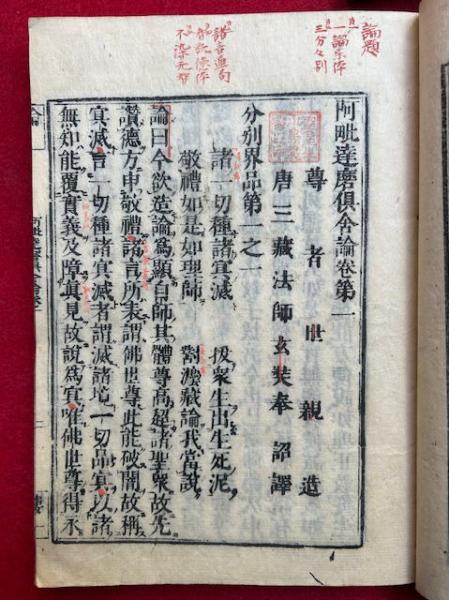 論題
三分々別
諸言通局
阿毗達磨俱舍論卷第一
尊者世親造
唐三藏法師玄奘奉 詔譯
分別界品第一之一
諸一切種諸冥滅 拔衆生出生死泥
敬禮如是如理師 對法藏論我當說
論曰今欲造論爲顯自師其體尊高超諸聖衆故先
讚德方申敬禮諸言所表謂佛世尊此能破闇故稱
冥滅言一切種諸冥滅者謂滅諸境一切品冥以諸
無知能覆實義及障眞見故說爲冥唯佛世尊得永